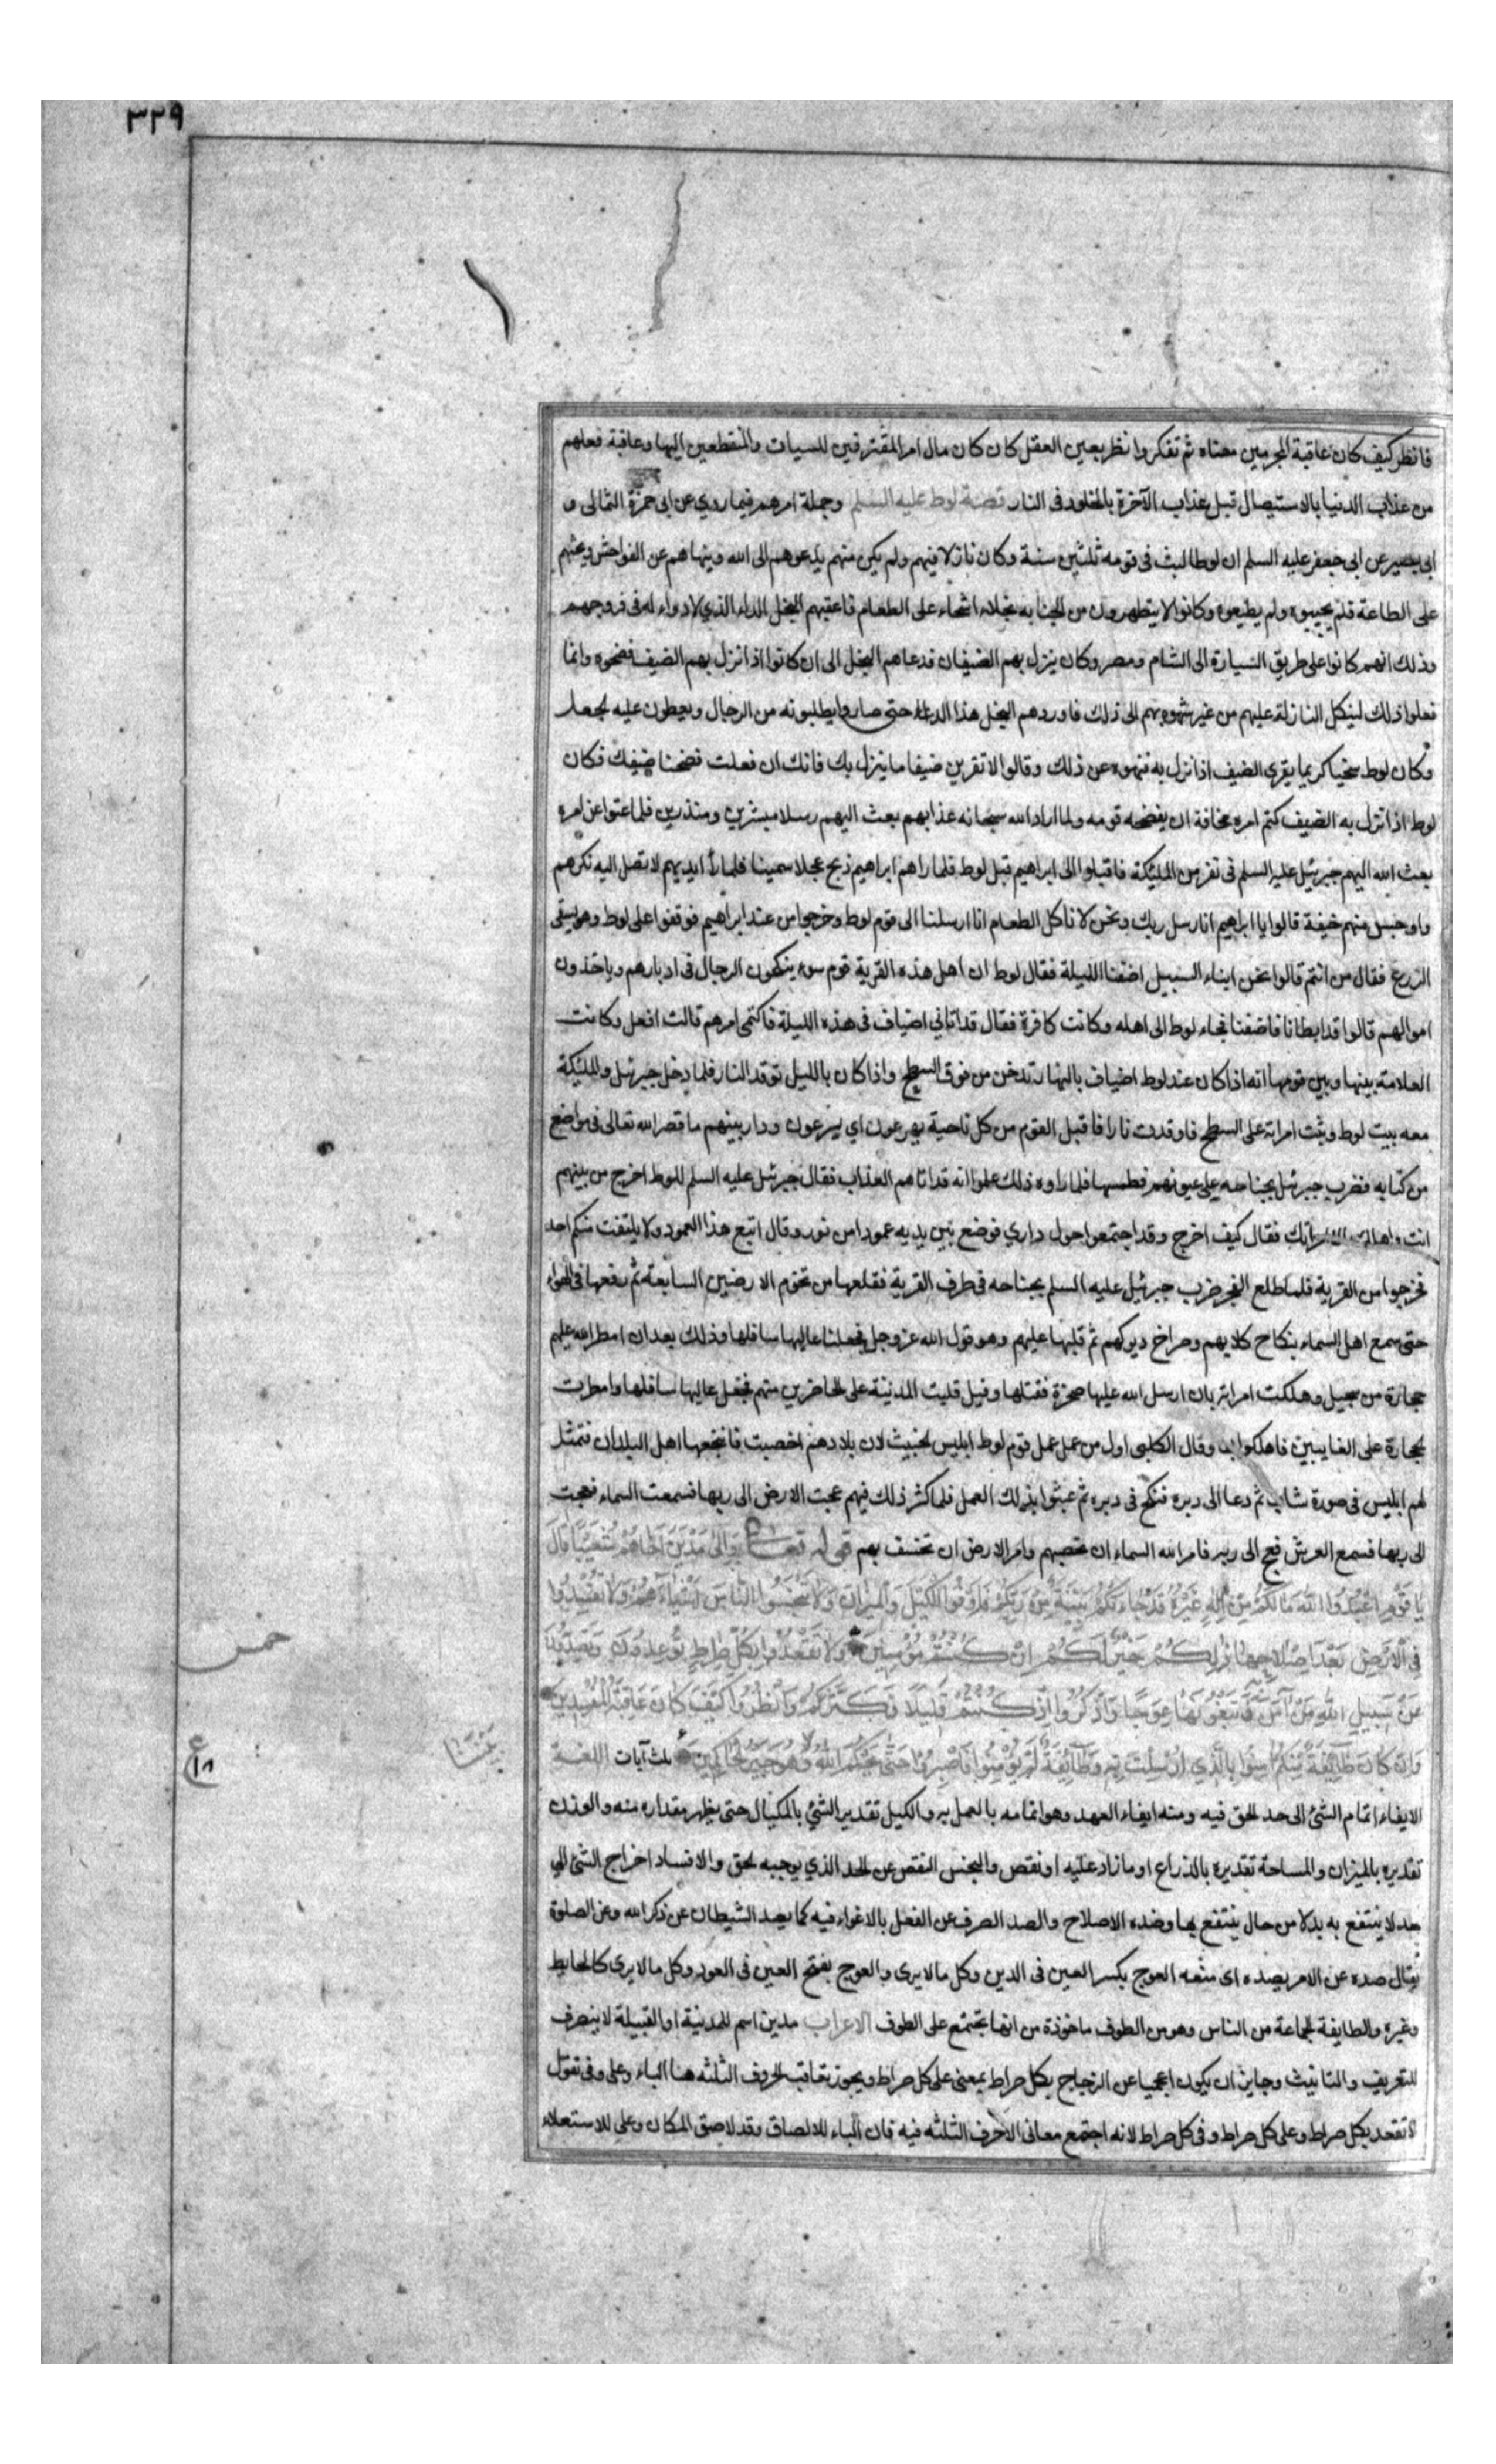 ٣٢٩
فانظر كيف كان عاقبة المجرمين معناه ثم تفكروا نظر بعين العقل كان كان مال امر المقترفين للسيات والمنقطعين اليها وعاقبة فعلهم
من عذاب الدنيا بالاستيصال قبل عذاب الآخرة بالخلود فى النار قصة لوط عليه السلم وجملة امرهم فيما روي عن ابى حمزة الثمالى و
ابى بصير عن ابى جعفر عليه السلم ان لوطا لبث فى قومه ثلثين سنة وكان نازلا فيهم ولم يكن منهم يدعوهم الى الله وينهاهم عن الفواحش ويحثهم
على الطاعة فلم يجيبوه ولم يطيعوه وكانوا لا يتطهرون من الجنابه بخلاء اشحاء على الطعام فاعقبهم البخل الداء الذي لا دواء له فى فروجهم
وذلك انهم كانوا على طريق السيارة الى الشام ومصر وكان ينزل بهم الضيفان فدعاهم البخل الى ان كانوا اذا نزل بهم الضيف فضحوه وانما
فعلوا ذلك لينكل النازلة عليهم من غير شهوه بهم الى ذلك فاوردهم البخل هذا الداء حتى صاروا يطلبونه من الرجال ويعطون عليه لجعل
وكان لوط سخيا كريما يقرى الضيف اذا نزل به فنهوه عن ذلك وقالوا لا تقرين ضيفا ما ينزل بك فانك ان فعلت فضحنا ضيفك فكان
لوط اذا نزل به الضيف كتم امره مخافة ان يفضحه قومه ولما اراد الله سبحانه عذابهم بعث اليهم رسلا مبشرين ومنذرين فلما عتوا عن امره
بعث الله اليهم جبرئيل عليه السلم فى نفر من الملئكة فاقبلوا الى ابراهيم قبل لوط فلما راهم ابراهيم ذبح عجلا سمينا فلما رأ ايديهم لا تصل اليه نكرهم
واوجس منهم خيفة قالوا يا ابراهيم انا رسل ربك ونحن لا ناكل الطعام انا ارسلنا الى قوم لوط وخرجوا من عند ابراهيم فوقفوا على لوط وهو يسقى
الزرع فقال من انتم قالوا نحن ابناء السبيل اضفنا الليلة فقال لوط ان اهل هذه القرية قوم سوء ينكحون الرجال فى ادبارهم وياخذون
اموالهم قالوا قد ابطانا فاضفنا فجاء لوط الى اهله وكانت كافرة فقال قد اتاني اضياف فى هذه الليلة فاكتمى امرهم قالت افعل وكانت
العلامة بينها وبين قومها انه اذا كان عند لوط اضياف بالنهار تدخن من فوق السطح واذا كان بالليل توقد النار فلما دخل جبرئيل والملئكة
معه بيت لوط وثبت امراته على السطح فاوقدت نارا فاقبل القوم من كل ناحية يهرعون اي يسرعون ودار بينهم ما قصه الله تعالى فى مواضع
من كتابه فضرب جبرئيل بجناحه على عيونهم فطمسها فلما راوه ذلك علموا انه قد اتاهم العذاب فقال جبرئيل عليه السلم للوط اخرج من بينهم
انت واهلك الا امراتك فقال كيف اخرج وقد اجتمعوا حول داري فوضع بين يديه عمودا من نور وقال اتبع هذا العمود ولا يلتفت منكم احد
فخرجوا من القرية فلما طلع الفجر ضرب جبرئيل عليه السلم بجناحه فى طرف القرية فقلعها من تخوم الارضين السابعة ثم رفعها فى الهواء
حتى سمع اهل السماء بنكاح كلابهم وصراخ ديوكهم ثم قلبها عليهم وهو قول الله عز وجل فجعلنا عاليها سافلها وذلك بعد ان امطر الله عليهم
حجارة من سجيل وهلكت امراته بان ارسل الله عليها صخرة فقتلها وقيل قلبت المدينة على الحاضرين منهم فجعل عاليها سافلها وامطرت
لحجارة على الغايبين فاهلكوا بها وقال الكلبى اول من عمل عمل قوم لوط ابليس لخبيث لان بلادهم اخصبت فانتجعها اهل البلدان فتمثل
لهم ابليس فى صورة شاب ثم دعا الى دبره فنكح فى دبره ثم عبثوا بذلك العمل فلما كثر ذلك فيهم عجت الارض الى ربها فسمعت السماء فعجت
الى ربها فسمع العرش فعج الى ربه فامر الله السماء ان تحصبهم وامر الارض ان تخسف بهم قوله تعالى وَاِلى مَدْيَنَ اَخَاهُمْ شُعَيْبًا قَالَ
يَا قَوْمِ اعْبُدُوا اللّٰهَ مَا لَكُمْ مِنْ اِلهٍ غَيْرُهُ قَدْ جَاءَتْكُمْ بَيِّنَةٌ مِنْ رَبِّكُمْ فَاَوْفُوا الْكَيْلَ وَالْمِيزَانَ وَلَا تَبْخَسُوا النَّاسَ اَشْيَاءَهُمْ وَلَا تُفْسِدُوا
فِى الْاَرْضِ بَعْدَ اِصْلَاحِهَا ذلِكُمْ خَيْرٌ لَكُمْ اِنْ كُنْتُمْ مُؤْمِنِينَ وَلَا تَقْعُدُوا بِكُلِّ صِرَاطٍ تُوعِدُونَ وَتَصُدُّونَ
خمس
عَنْ سَبِيلِ اللّٰهِ مَنْ آمَنَ بِهِ وَتَبْغُونَهَا عِوَجًا وَاذْكُرُوا اِذْ كُنْتُمْ قَلِيلًا فَكَثَّرَكُمْ وَانْظُرُوا كَيْفَ كَانَ عَاقِبَةُ الْمُفْسِدِينَ
وَاِنْ كَانَ طَائِفَةٌ مِنْكُمْ آمَنُوا بِالَّذِي اُرْسِلْتُ بِهِ وَطَائِفَةٌ لَمْ يُؤْمِنُوا فَاصْبِرُوا حَتّى يَحْكُمَ اللّٰهُ بَيْنَنَا وَهُوَ خَيْرُ الْحَاكِمِينَ ثلث آيات اللغة
بَيْنَنَا
ع ١٨
الايفاء اتمام الشئ الى حد لحق فيه ومنه ايفاء العهد وهو اتمامه بالعمل به والكيل تقدير الشئ بالمكيال حتى يظهر مقداره منه والوزن
تقديره بالميزان والمساحة تقديره بالذراع او ما زاد عليه او نقص والبخس النقص عن لحد الذي يوجبه لحق والافساد اخراج الشئ الى
حد لا ينتفع به بدلا من حال ينتفع بها وضده الاصلاح والصد الصرف عن الفعل بالاغواء فيه كما يصد الشيطان عن ذكر الله وعن الصلوة
يقال صده عن الامر يصده اى منعه العوج بكسر العين فى الدين وكل ما لا يرى والعوج بفتح العين فى العود وكل ما لا يرى كالحايط
وغيره والطايفة لجماعة من الناس وهو من الطوف ماخوذة من انها تجتمع على الطوف الاعراب مدين اسم للمدينة او القبيلة لا ينصرف
للتعريف والتانيث وجايز ان يكون اعجميا عن الزجاج بكل صراط بمعنى على كل صراط ويجوز تعاقب لحروف الثلثه هنا الباء وعلى وفى تقول
لا تقعد بكل صراط وعلى كل صراط وفى كل صراط لانه اجتمع معانى الاحرف الثلثه فيه فان الباء للالصاق وقد لاصق المكان وعلى للاستعلاء